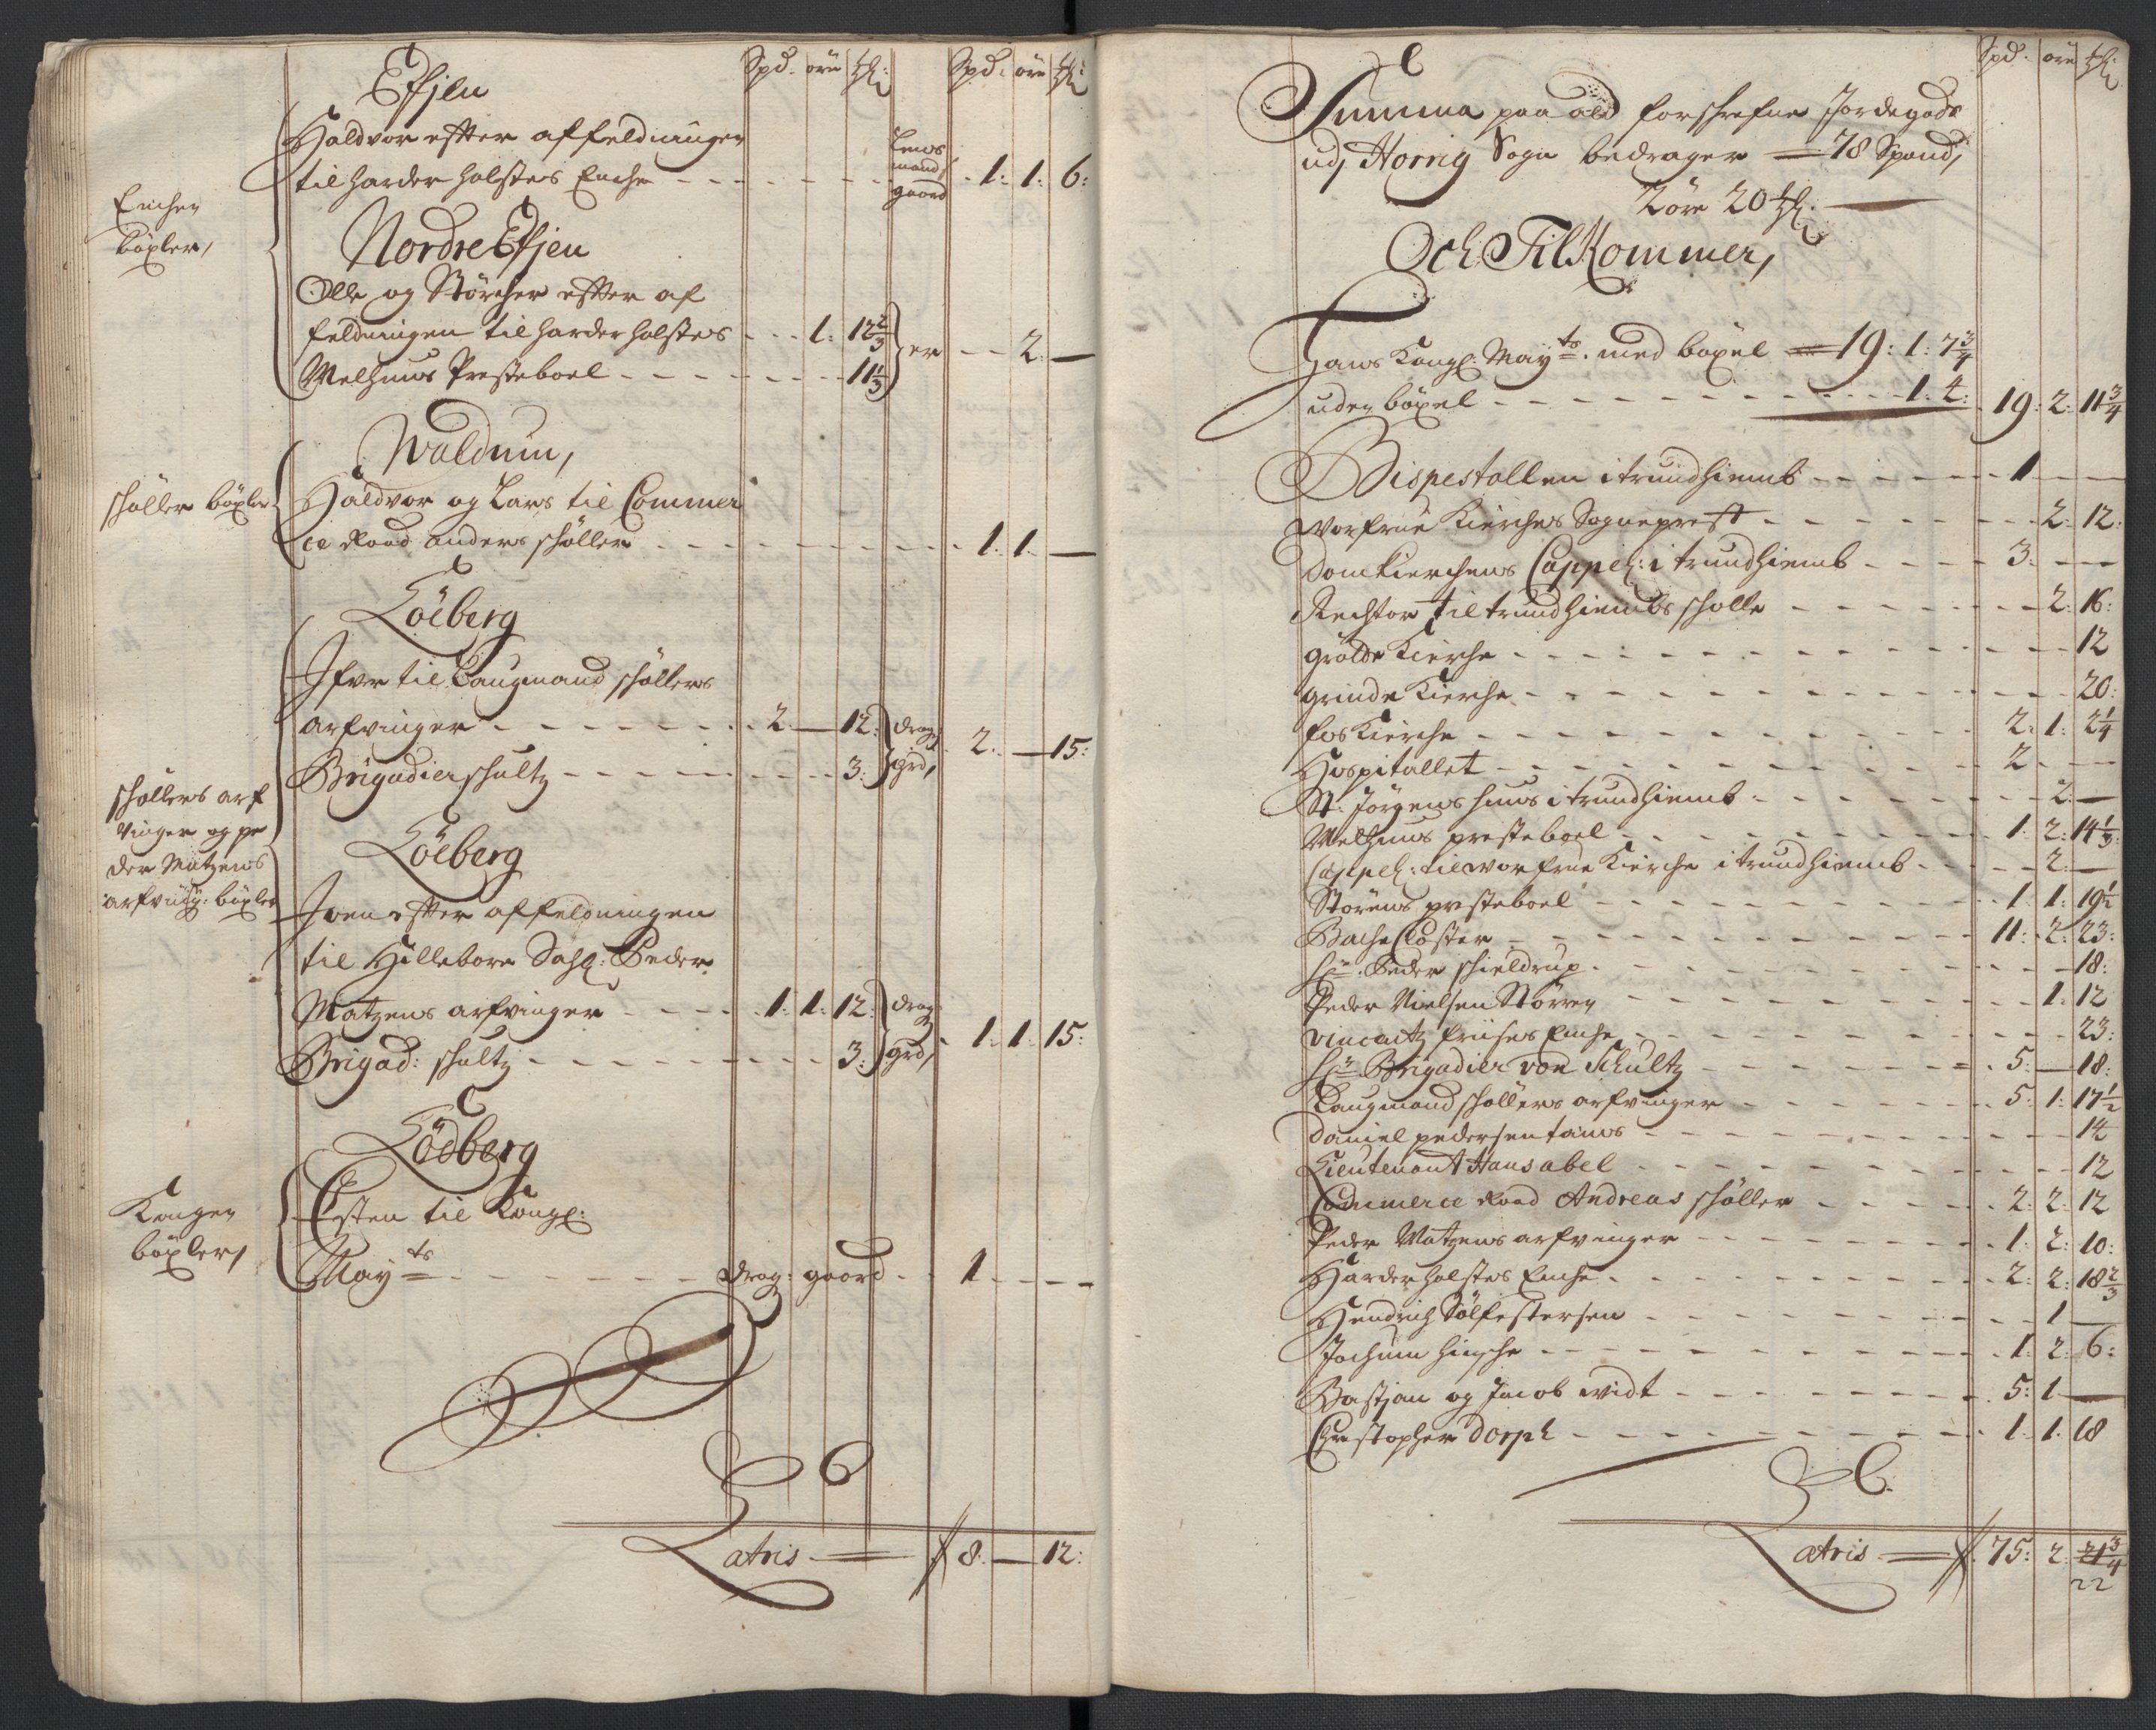 Spd. öre ₶: Spd: öre ₶:
Efsjen
Haldvor efter affeldningen
til Harder Holstes Enche - - - Lens mand gaard - 1: 1: 6:
Enchen
böxler,
Nordre Efsjen
Olle og Störcher efter af
feldningen til Harder Holstes - - - 1: 12 2/3
er - - 2. —
Melhuus Presteboel - - - 11 1/3
Waldum,
Schöller böxler
Haldvor og Lars til Commer
ce Raad Anders Schöller - - - 1: 1: —
Löeberg
Ifver til Laugmand Schöllers
arfvinger - - - 2: — 12:
drag: grd, 2: — 15:
Brigadier Schultz - - - 3:
Schöllers arf
vinger og pe
der Matzens
arfving: böxler
Löeberg
Iven efter affeldningen
til Hilleborr Sahl: Peder
Matzens arfvinger - - - 1: 1: 12:
drag: grd, 1: 1: 15:
Brigad: Schultz - - - 3:
Lödberg
Kongen
böxler,
Esten til Kongl:
Mayts - - - drag: gaard - - 1 - - -
Latris — 8: — 12:
Spd. öre ₶:
Summa paa ald forschrefne Jordegods
udj Horrig Sogn bedrager — 78 Spand,
2 öre 20 ₶: —
Och TilKommer,
Hans Kongl: Mayts: med böxel — 19: 1: 7 3/4
uden böxel - - - 1: 4: 19: 2: 11 3/4
Bispestollen i trundhiemb - - - 1 - - -
Worfrue Kierches Sogneprest - - - 2: 12:
Domkierchens Cappel: i trundhiemb - - - 3: - -
Rechtor til trundhiembs Scholle - - - 2: 16:
grölde Kierche - - - 12
grinde Kierche - - - 20:
fos Kierche - - - 2: 1: 2 1/4
Hospitallet - - - 2 - -
St: Jörgens huus i trundhiemb - - - 2: —
Melhuus presteboel - - - 1: 2: 14 1/3:
Cappel: til vor frue Kierche i trundhiemb - - - 2: —
Störens presteboel - - - 1: 1: 19 1/2
Bache Closter - - - 11: 2: 23:
Hr: Peder Schieldrup - - - 18:
Peder Nielsen Störren - - - 1: 12
Vincentz friises Enche - - - 23:
Hr: Brigadier von Schultz - - - 5: — 18:
Laugmand Schöllers arfvinger - - - 5: 1: 17 1/2
Daniel pedersen tams - - - 14
Lieutenant Hans abel - - - 12
Commerce Raad Andreas Schöller - - - 2: 2: 12
Peder Matzens arfvinger - - - 1: 2: 10:
Harder Holstes Enche - - - 2: 2: 18 2/3
Hendrich Sölfestersen - - - 1 —
Jochum Hinsche - - - 1: 2: 6:
Bastjan og Jacob widt - - - 5: 1 —
Christopher Dorph - - - 1: 1: 18
Latris — 75: 2: 21 3/4
22